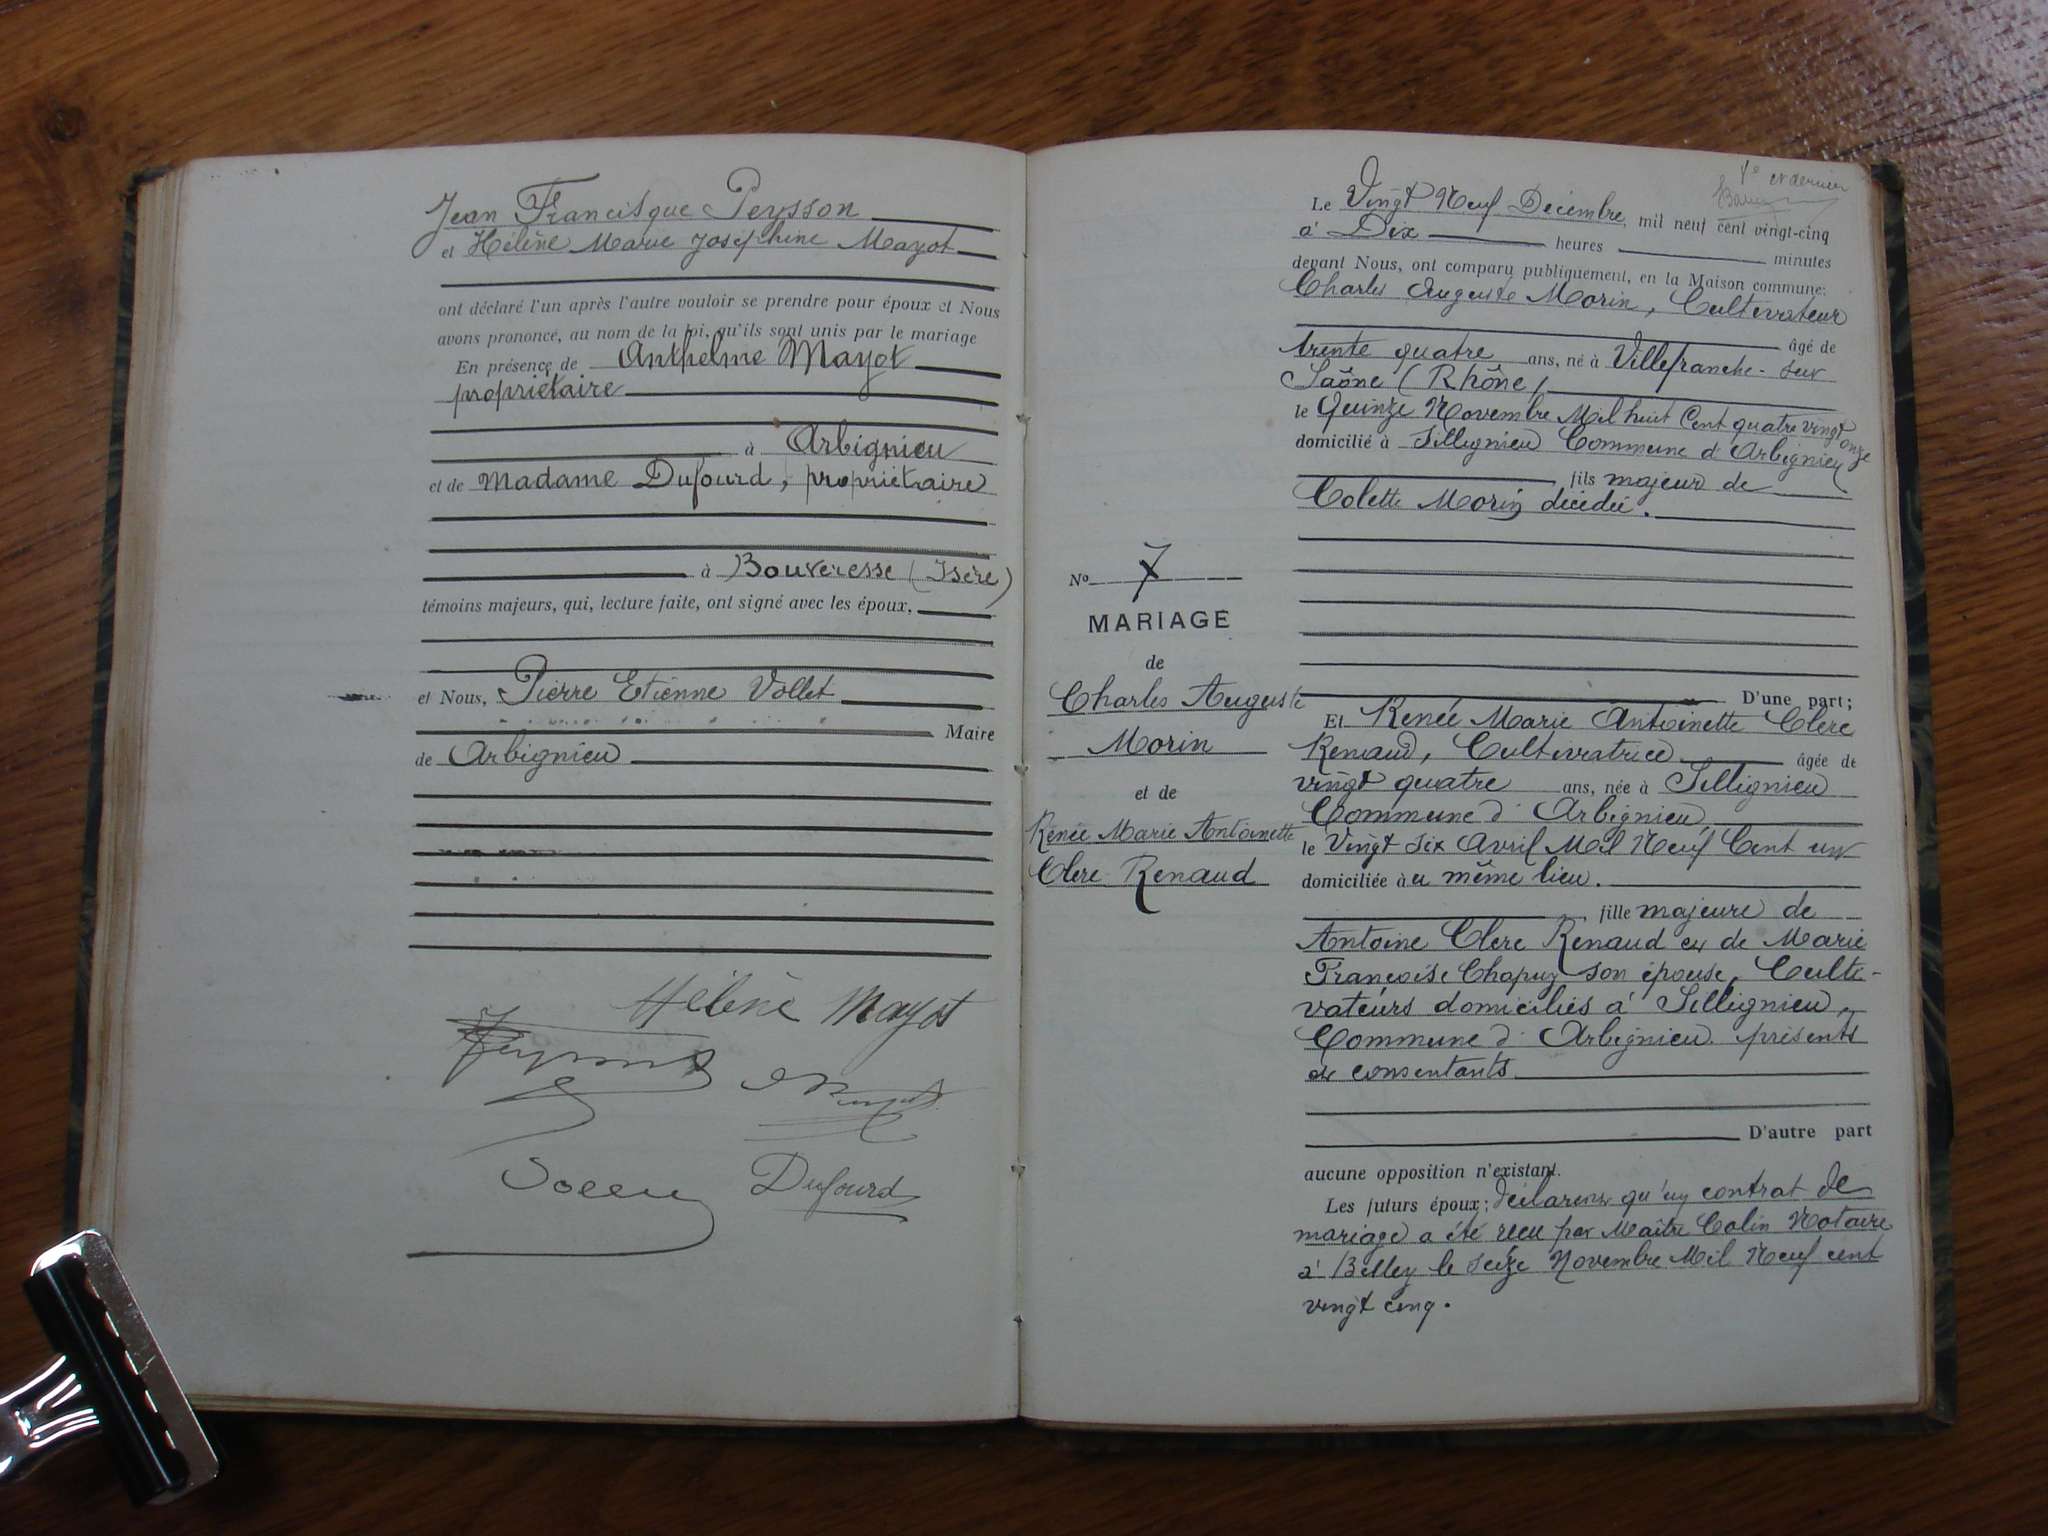 Jean Francisque Peysson
et Hélène Marie Joséphine Mayot
ont déclaré l'un après l'autre vouloir se prendre pour époux et Nous
avons prononcé, au nom de la loi, qu'ils sont unis par le mariage
En présence de Anthelme Mayot
propriétaire
à Arbignieu
et de Madame Dufourd, propriétaire
à Bouveresse (Isère)
témoins majeurs, qui, lecture faite, ont signé avec les époux,
et Nous, Pierre Etienne Vollet
Maire
de Arbignieu
Hélène Mayot
Dufourd
4e et dernier
Le Vingt Neuf Décembre, mil neuf cent vingt-cinq
à Dix heures minutes
devant Nous, ont comparu publiquement, en la Maison commune:
Charles Auguste Morin, Cultivateur
âgé de
trente quatre ans, né à Villefranche-sur
Saône (Rhône)
le Quinze Novembre Mil huit Cent quatre vingt
onze
domicilié à Sillignieu Commune d'Arbignieu
fils majeur de
Colette Morin décédée.
No 7
MARIAGE
de
Charles Auguste
Morin
et de
Renée Marie Antoinette
Clerc Renaud
D'une part;
Et Renée Marie Antoinette Clerc
Renaud, Cultivatrice âgée de
vingt quatre ans, née à Sillignieu
Commune d'Arbignieu
le Vingt six Avril Mil Neuf Cent un
domiciliée au même lieu.
fille majeure de
Antoine Clerc Renaud et de Marie
Françoise Chapuy son épouse, Culti-
vateurs domiciliés à Sillignieu,
Commune d'Arbignieu présents
et consentants
D'autre part
aucune opposition n'existant.
Les futurs époux; déclarent qu'un contrat de
mariage a été reçu par Maître Colin Notaire
à Belley le seize Novembre Mil Neuf cent
vingt cinq.